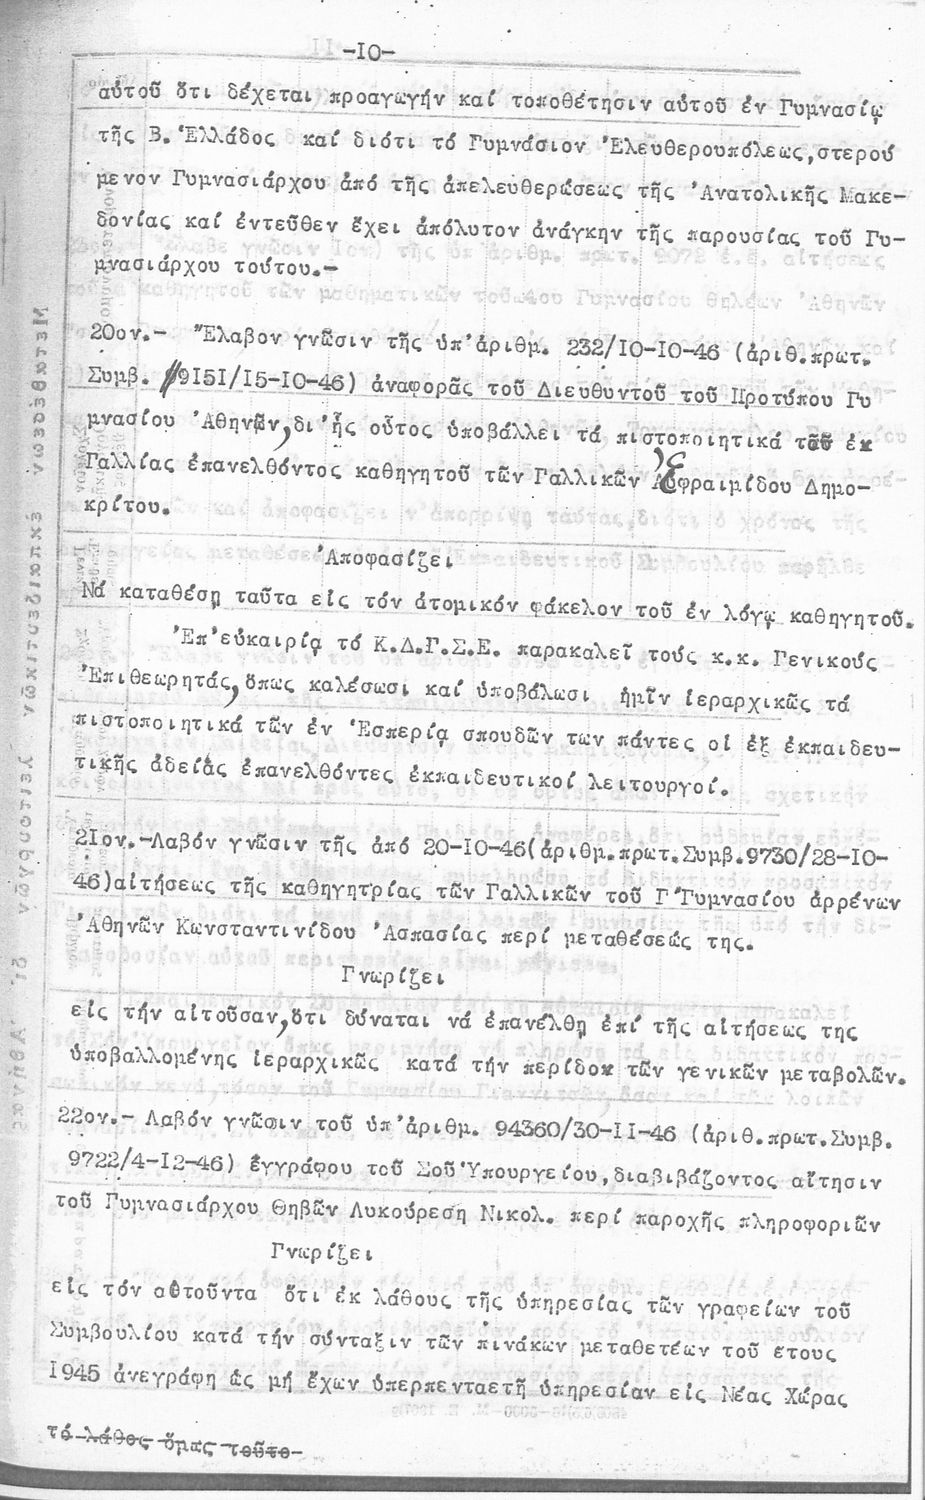 -IO-
αὐτοῦ ὅτι δέχεται προαγωγήν καί τοποθέτησιν αὐτοῦ ἐν Γυμνασίῳ
τῆς Β. Ἑλλάδος καί διότι τό Γυμνάσιον Ἐλευθερουπόλεως,στερού
μενον Γυμνασιάρχου ἀπό τῆς ἀπελευθερώσεως τῆς Ἀνατολικῆς Μακε-
δονίας καί ἐντεῦθεν ἔχει ἀπόλυτον ἀνάγκην τῆς παρουσίας τοῦ Γυ-
μνασιάρχου τούτου.-
20ον.- Ἔλαβον γνῶσιν τῆς ὑπ'ἀριθμ. 232/IO-IO-46 (ἀριθ.πρωτ.
Συμβ. 9I5I/I5-IO-46) ἀναφορᾶς τοῦ Διευθυντοῦ τοῦ Προτύπου Γυ
μνασίου Ἀθηνῶν,δι'ἧς οὗτος ὑποβάλλει τά πιστοποιητικά τοῦ ἐκ
Γαλλίας ἐπανελθόντος καθηγητοῦ τῶν Γαλλικῶν Ἐφραιμίδου Δημο-
κρίτου.
Ἀποφασίζει
Νά καταθέσῃ ταῦτα εἰς τόν ἀτομικόν φάκελον τοῦ ἐν λόγῳ καθηγητοῦ.
Ἐπ'εὐκαιρίᾳ τό Κ.Δ.Γ.Σ.Ε. παρακαλεῖ τούς κ.κ. Γενικούς
Ἐπιθεωρητάς,ὅπως καλέσωσι καί ὑποβάλωσι ἡμῖν ἱεραρχικῶς τά
πιστοποιητικά τῶν ἐν Ἑσπερίᾳ σπουδῶν των πάντες οἱ ἐξ ἐκπαιδευ-
τικῆς ἀδείας ἐπανελθόντες ἐκπαιδευτικοί λειτουργοί.
2Iον.-Λαβόν γνῶσιν τῆς ἀπό 20-IO-46(ἀριθμ.πρωτ.Συμβ.9730/28-IO-
46)αἰτήσεως τῆς καθηγητρίας τῶν Γαλλικῶν τοῦ Γ'Γυμνασίου ἀρρένων
Ἀθηνῶν Κωνσταντινίδου Ἀσπασίας περί μεταθέσεώς της.
Γνωρίζει
εἰς τήν αἰτοῦσαν,ὅτι δύναται νά ἐπανέλθῃ ἐπί τῆς αἰτήσεως της
ὑποβαλλομένης ἱεραρχικῶς κατά τήν περίδον τῶν γενικῶν μεταβολῶν.
22ον.- Λαβόν γνῶσιν τοῦ ὑπ'ἀριθμ. 94360/30-II-46 (ἀριθ.πρωτ.Συμβ.
9722/4-I2-46) ἐγγράφου τοῦ Σοῦ Ὑπουργείου,διαβιβάζοντος αἴτησιν
τοῦ Γυμνασιάρχου Θηβῶν Λυκούρεση Νικολ. περί παροχῆς πληροφοριῶν
Γνωρίζει
εἰς τόν αἰτοῦντα ὅτι ἐκ λάθους τῆς ὑπηρεσίας τῶν γραφείων τοῦ
Συμβουλίου κατά τήν σύνταξιν τῶν πινάκων μεταθετέων τοῦ ἔτους
I945 ἀνεγράφη ὡς μή ἔχων ὑπερπενταετῆ ὑπηρεσίαν εἰς Νέας Χώρας
τό λάθος ὅμως τοῦτο